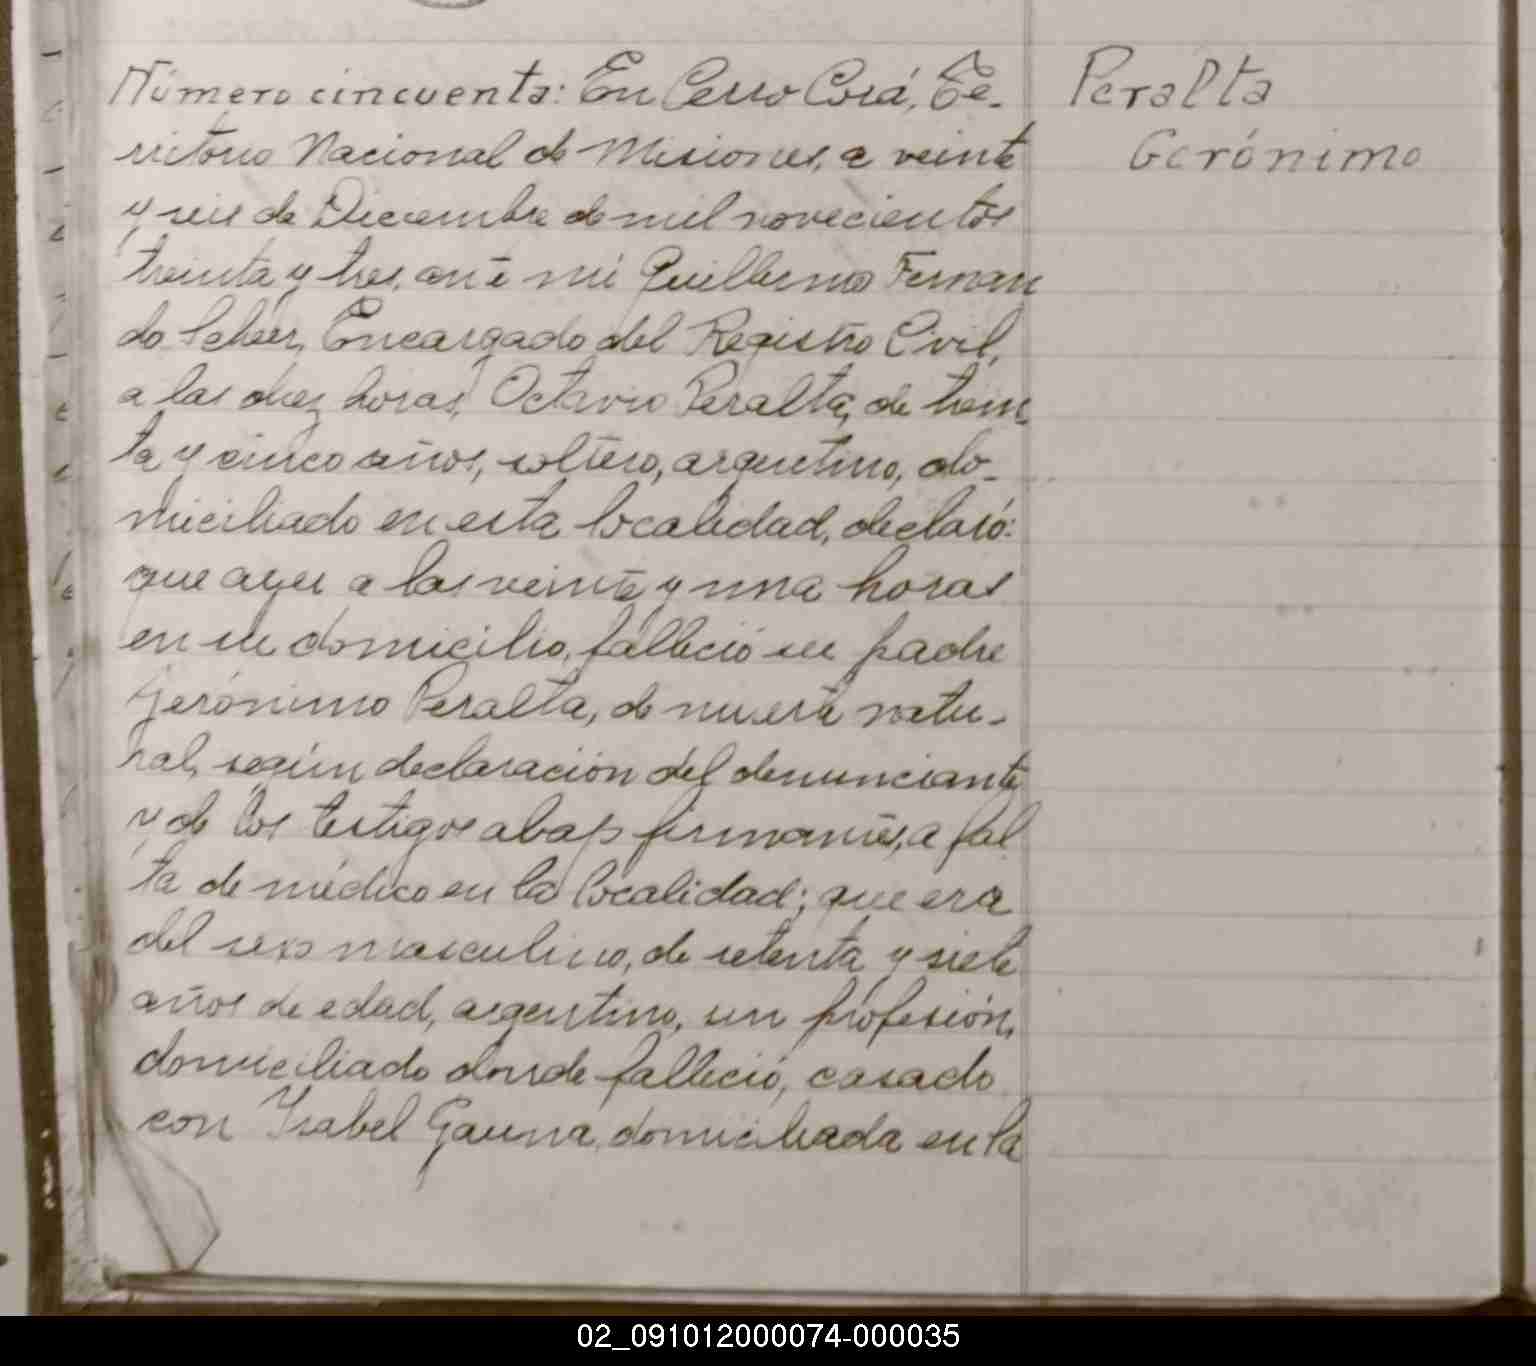 Número cincuenta: En Cerro Corá, Te-
rritorio Nacional de Misiones, a veinte
y seis de Diciembre de mil novecientos
treinta y tres, ante mi Guillermo Fernan
do Scheer, Encargado del Registro Civil,
a las diez horas, Octavio Peralta, de trein
ta y cinco años, soltero, argentino, do-
miciliado en esta localidad, declaró:
que ayer a las veinte y una horas
en su domicilio, falleció su padre
Gerónimo Peralta, de muerte natu-
ral, según declaración del denunciante
y de los testigos abajo firmantes, a fal
ta de médico en la localidad; que era
del sexo masculino, de setenta y siete
años de edad, argentino, sin profesión,
domiciliado donde falleció, casado
con Isabel Gauna, domiciliada en la
Peralta
Gerónimo
02_091012000074-000035